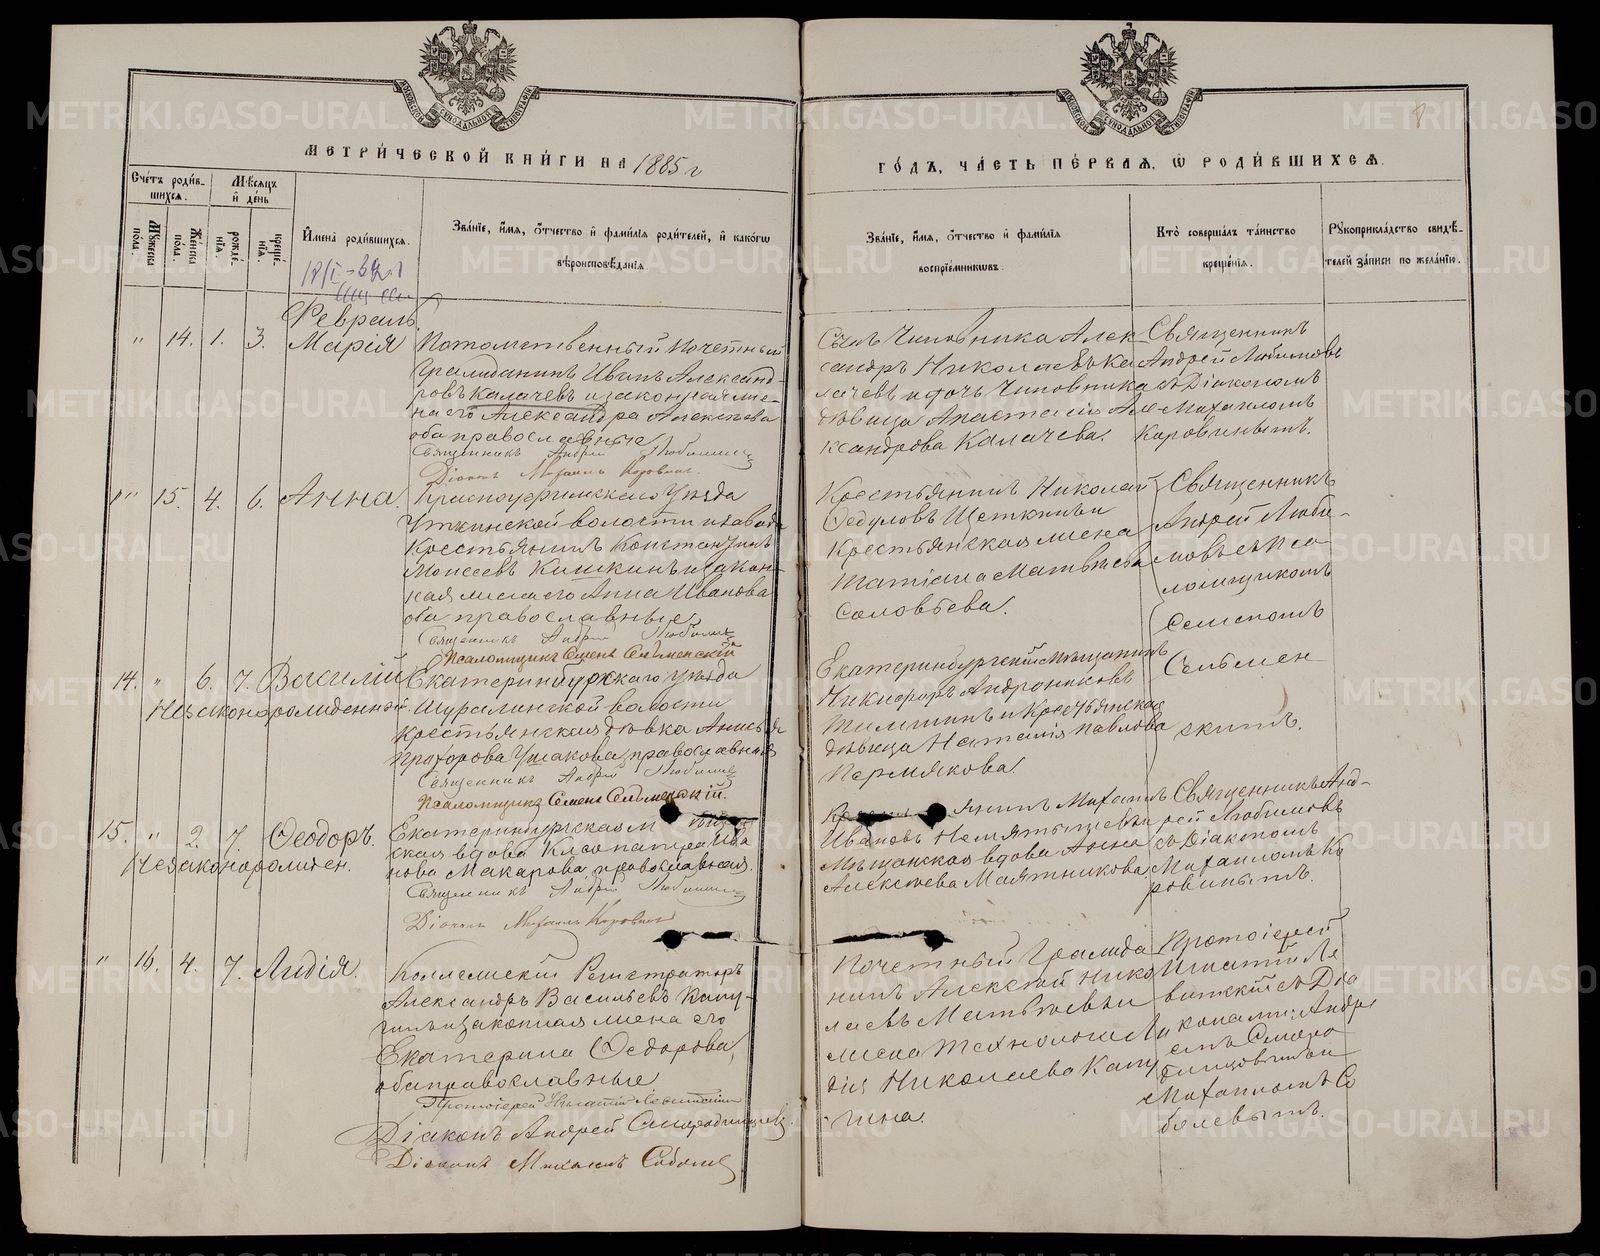 МЕТРИ́ЧЕСКОЙ КНИ́ГИ НА 1885 г
ГО́ДЪ, ЧА́СТЬ ПЕ́РВАЯ, Ѡ РОДИ́ВШИХСЯ.
Сче́тъ роди́в-
шихся.
Мѣ́сяцъ
и́ де́нь
Му́жеска
пола.
Же́нска
пола.
рожде́-
нїя.
креще́-
нїя.
И҆мена̀ роди́вшихся.
Зва́нїе, и҆́мя, ѻ҆́тчество и҆ фами́лїя роди́телей, и҆ како́гѡ
вѣроисповѣ́данїя.
Зва́нїе, и҆́мя, ѻ҆́тчество и҆ фами́лїя
воспрїе́мниковъ.
Кто̀ соверша́лъ та́инство
креще́нїя.
Рꙋкоприкла́дство свидѣ́-
телей за́писи по жела́нїю.
Февраль.
" 14. 1. 3. Марія
Потомственный Почетный
Гражданинъ Иванъ Александ-
ровъ Калачевъ и законная же-
на его Александра Алексѣева
оба православные
Священникъ Андрей Любимовъ
Діаконъ Михаилъ Коровинъ.
Сынъ Чиновника Алек-
сандръ Николаевъ Ка-
лачевъ и дочь Чиновника
дѣвица Анастасія Але-
ксандрова Калачева.
Священникъ
Андрей Любимовъ
съ Діакономъ
Михаиломъ
Коровинымъ.
" 15. 4. 6. Анна.
Красноуфимскаго Уѣзда
Уткинской волости и завода
Крестьянинъ Константинъ
Моисеевъ Кишкинъ и закон-
ная жена его Анна Иванова
оба православные
Священникъ Андрей Любимовъ
Псаломщикъ Семенъ Сельменскій
Крестьянинъ Николай
Федуловъ Щеткинъ и
Крестьянская жена
Татіана Матвѣева
Соловьева.
Священникъ
Андрей Люби-
мовъ съ Пса-
ломщикомъ
Семеномъ
Сельмен-
скимъ.
14. " 6. 7. Василій
Незаконорожденный.
Екатеринбургскаго Уѣзда
Шуралинской волости
крестьянская дѣвка Анисья
Прохорова Ушакова, православная
Священникъ Андрей Любимовъ
Псаломщикъ Семенъ Сельменскій.
Екатеринбургскій мѣщанинъ
Никифоръ Андрониковъ
и Крестьянская
дѣвица Наталія Павлова
Пермякова.
15. " 2. 7. Ѳеодоръ.
Незаконорожден.
Екатеринбургская
ская вдова Клеопатра Ива
нова Макарова, православная.
Священникъ Андрей Любимовъ
Діаконъ Михаилъ Коровинъ
Михаилъ
Ивановъ и
Мѣщанская вдова Анна
Алексѣева Маятникова.
Священникъ Анд-
рей Любимовъ
съ Діакономъ
Михаиломъ Ко
ровинымъ.
" 16. 4. 7. Лидія.
Коллежскій Регистраторъ
Александръ Васильевъ Капу-
гинъ и законная жена его
Екатерина Ѳедорова,
оба православные
Протоіерей Игнатій Левитскій
Діаконъ Андрей Смородинцевъ.
Діаконъ Михаилъ Соболевъ
Почетный Гражда
нинъ Алексѣй Нико
лаевъ Матвѣевъ и
жена технолога Ли
дія Николаева Капу
гина.
Протоіерей
Игнатій Ле
витскій съ Діа
конами: Андре
емъ Сморо
динцовымъ и
Михаиломъ Со
болевымъ.
METRIKI.GASO-URAL.RU